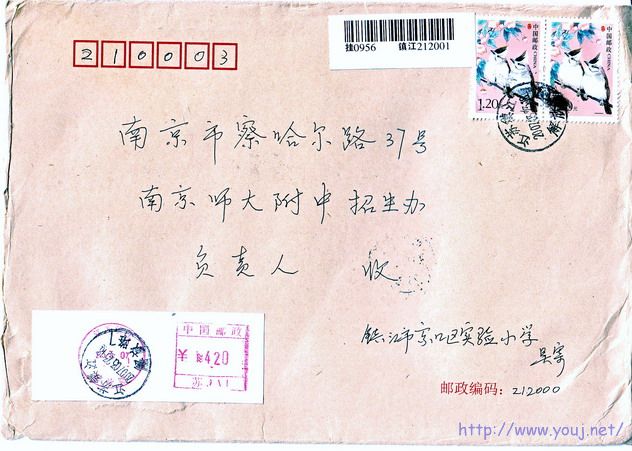 210003
挂0956 镇江212001
中国邮政
CHINA
1.20元
中国邮政
CHINA
南京市察哈尔路37号
南京师大附中招生办
负责人 收
中国邮政
¥ 420
镇江市京口区实验小学
吴寄
邮政编码：212000
http://www.youj.net/